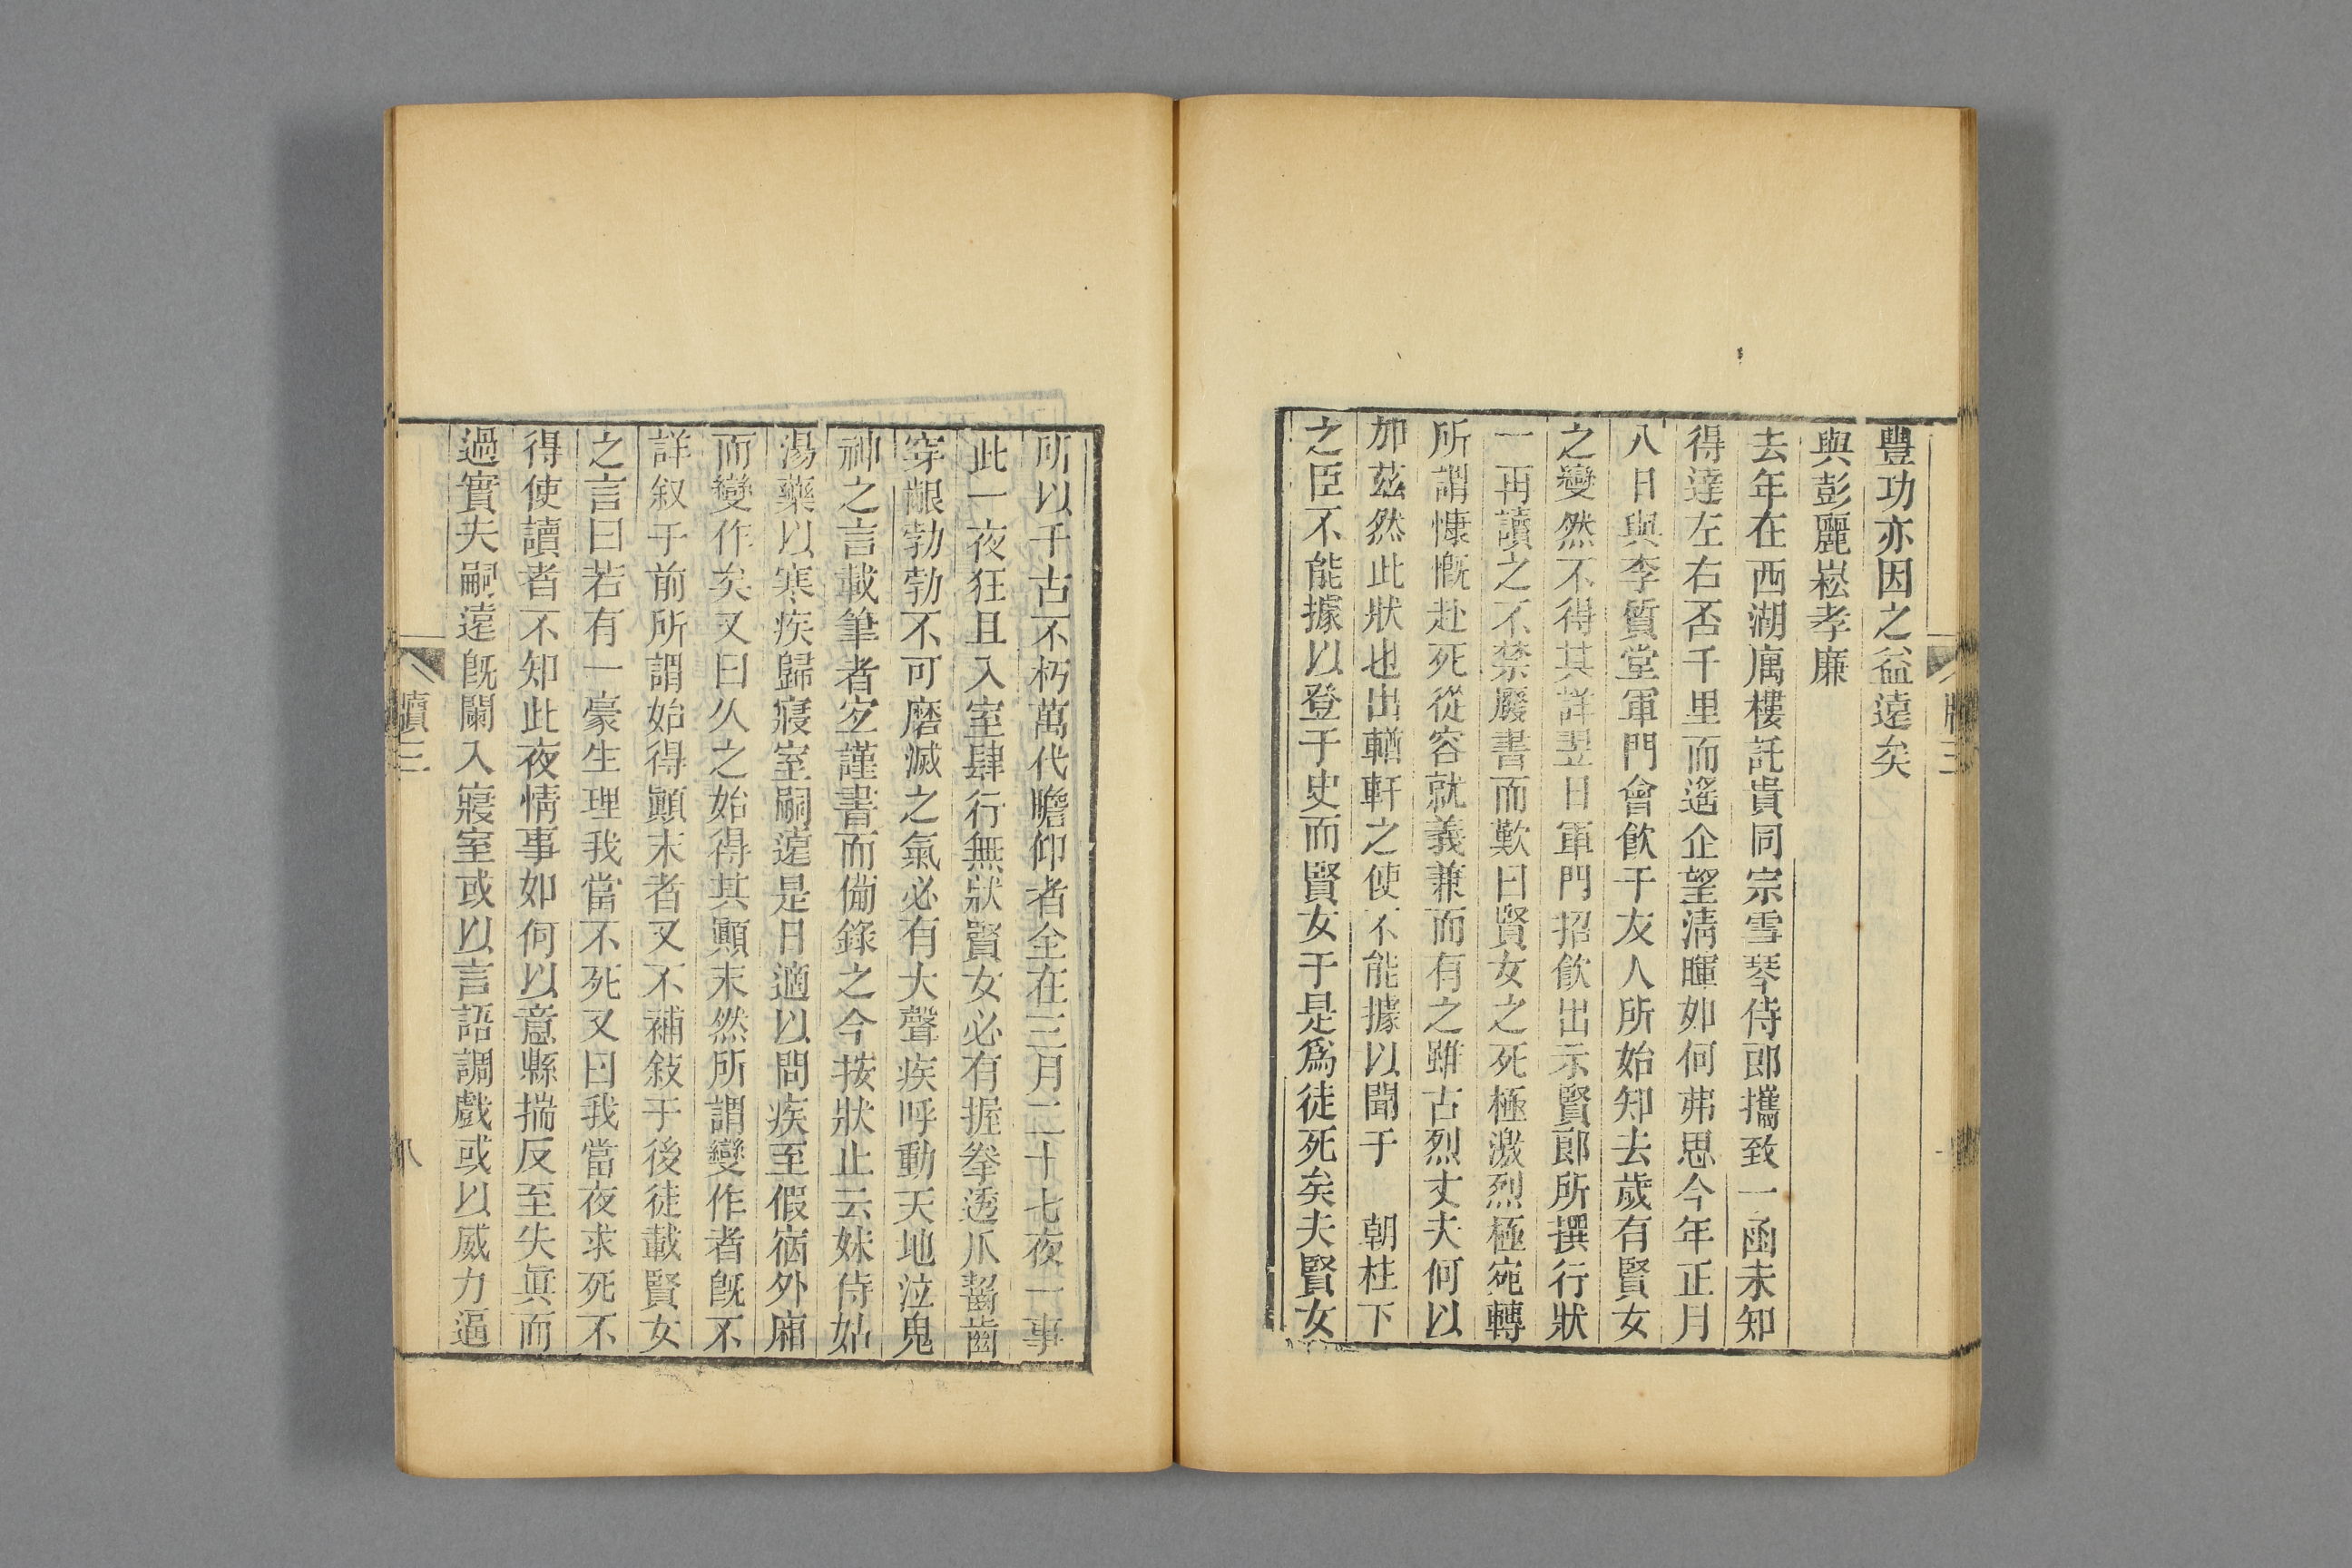 豐功亦因之益遠矣
與彭麗崧孝廉
去年在西湖寓樓託貴同宗雪琴侍郎攜致一函未知
得達左右否千里而遙企望清暉如何弗思今年正月
八日與李質堂軍門會飲于友人所始知去歲有賢女
之變然不得其詳翌日軍門招飲出示賢郎所撰行狀
一再讀之不禁廢書而歎曰賢女之死極激烈極宛轉
所謂慷慨赴死從容就義兼而有之雖古烈丈夫何以
加茲然此狀也出輶軒之使不能據以聞于 朝柱下
之臣不能據以登于史而賢女于是爲徒死矣夫賢女
所以千古不朽萬代瞻仰者全在三月二十七夜一事
此一夜狂且入室肆行無狀賢女必有握拳透爪齧齒
穿齦勃勃不可磨滅之氣必有大聲疾呼動天地泣鬼
神之言載筆者宐謹書而僃錄之今按狀止云妹侍姑
湯藥以寒疾歸寢室嗣遠是日適以問疾至假宿外廂
而變作矣又曰久之始得其顚末然所謂變作者旣不
詳叙于前所謂始得顚末者又不補敍于後徒載賢女
之言曰若有一豪生理我當不死又曰我當夜求死不
得使讀者不知此夜情事如何以意縣揣反至失眞而
過實夫嗣遠旣闌入寢室或以言語調戲或以威力逼
牘三
八